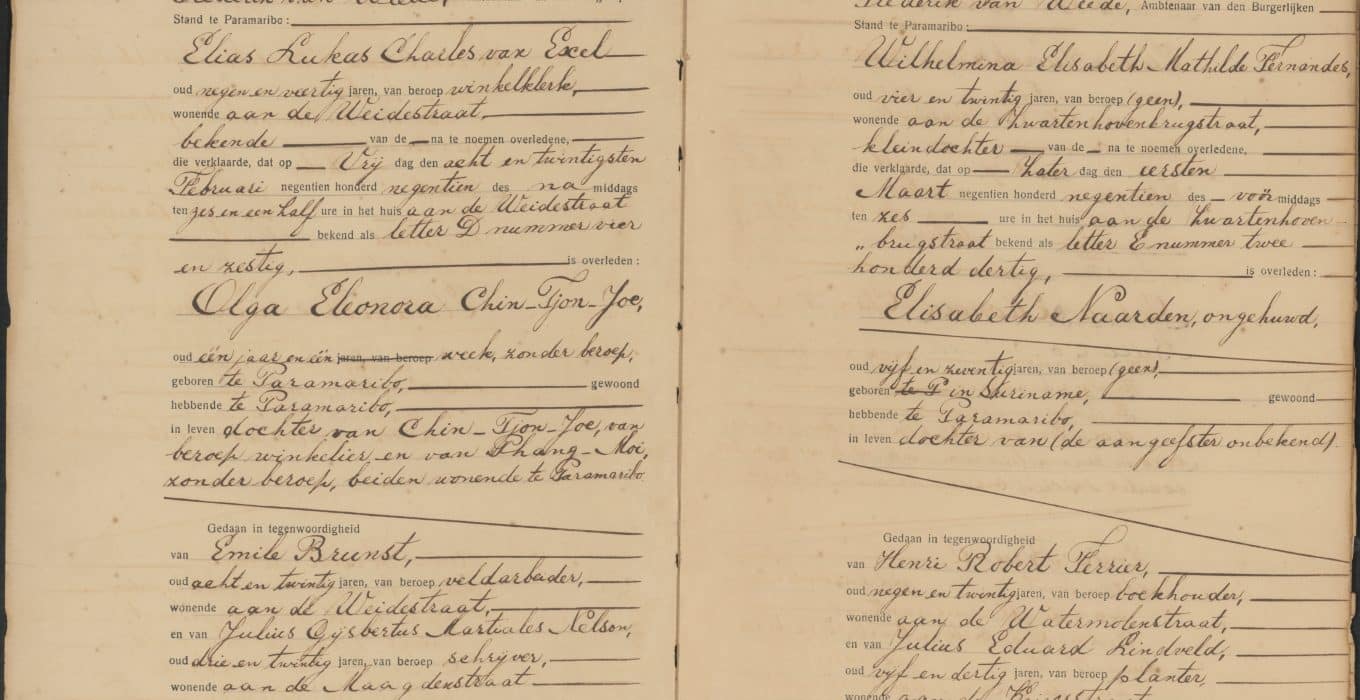 Frederik van Weede,
Stand te Paramaribo:
Elias Lukas Charles van Exel
oud negen en veertig jaren, van beroep winkelklerk,
wonende aan de Weidestraat,
bekende van de na te noemen overledene,
die verklaarde, dat op Vrij dag den acht en twintigsten
Februari negentien honderd negentien des na middags
ten zes en een half ure in het huis aan de Weidestraat
bekend als letter D nummer vier
en zestig, is overleden:
Olga Eleonora Chin-Tjon-Joe,
oud één jaar en één jaren, van beroep week, zonder beroep,
geboren te Paramaribo, gewoond
hebbende te Paramaribo,
in leven dochter van Chin-Tjon-Joe, van
beroep winkelier en van Phang-Moi,
zonder beroep, beiden wonende te Paramaribo
Gedaan in tegenwoordigheid
van Emile Brunst,
oud acht en twintig jaren, van beroep veldarbader,
wonende aan de Weidestraat,
en van Julius Gijsbertus Martiales Nelson,
oud drie en twintig jaren, van beroep schrijver,
wonende aan de Maagdenstraat
Frederik van Weede, Ambtenaar van den Burgerlijken
Stand te Paramaribo:
Wilhelmina Elisabeth Mathilde Fernandes,
oud vier en twintig jaren, van beroep (geen),
wonende aan de Zwartenhovenbrugstraat,
kleindochter van de na te noemen overledene,
die verklaarde, dat op Zater dag den eersten
Maart negentien honderd negentien des voör middags
ten zes ure in het huis aan de Zwartenhoven-
„ brugstraat bekend als letter E nummer twee
honderd dertig, is overleden:
Elisabeth Naarden, ongehuwd,
oud vijf en zeventig jaren, van beroep (geen),
geboren te P in Suriname, gewoond
hebbende te Paramaribo,
in leven dochter van (de aangeefster onbekend)
Gedaan in tegenwoordigheid
van Henri Robert Ferrier,
oud negen en twintig jaren, van beroep boekhouder,
wonende aan de Watermolenstraat,
en van Julius Eduard Lindveld,
oud vijf en dertig jaren, van beroep planter,
wonende aan de